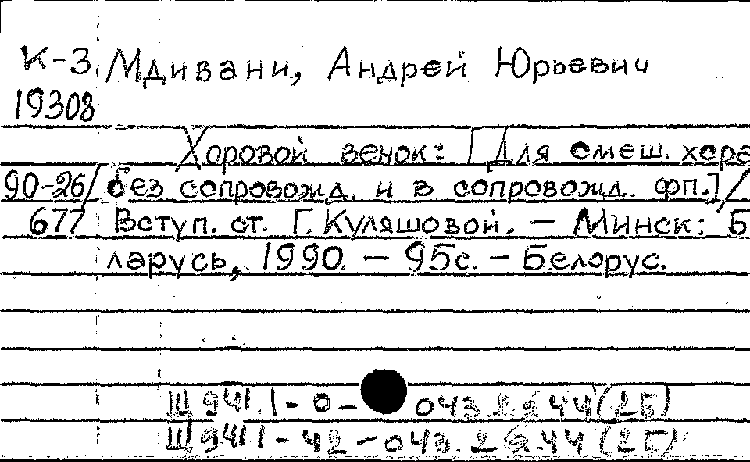 К-3 Мдивани, Андрей Юрьевич
19308
Хоровой венок: [Для смеш. хора
90-26/ без сопровожд. и в сопровожд. фп.]/
677 Вступ. ст. Г. Куляшовой. – Минск: Б
ларусь, 1990. – 95с. – Белорус.
Щ941.1-0-
Щ9411-42-